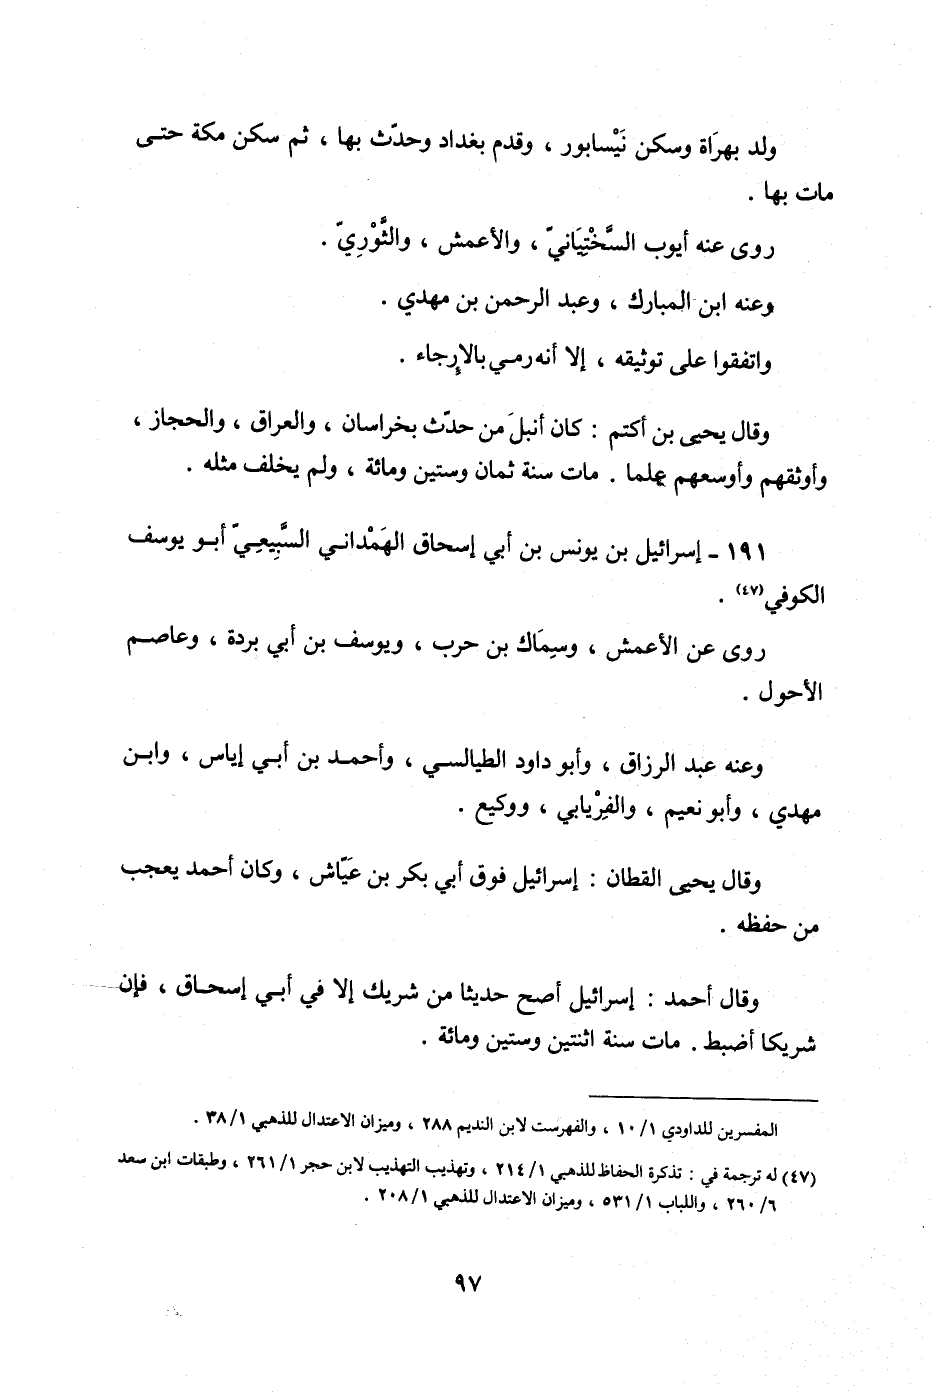 ولد بهرَاة وسكن نَيْسابور ، وقدم بغداد وحدّث بها ، ثم سكن مكة حتى
مات بها .
روى عنه أيوب السَّخْتِيَانيّ ، والأعمش ، والثَّوْرِيّ .
وعنه ابن المبارك ، وعبد الرحمن بن مهدي .
واتفقوا على توثيقه ، إلا أنه رمي بالإرجاء .
وقال يحيى بن أكتم : كان أنبلَ من حدّث بخراسان ، والعراق ، والحجاز ،
وأوثقهم وأوسعهم علما . مات سنة ثمان وستين ومائة ، ولم يخلف مثله .
١٩١ ـ إسرائيل بن يونس بن أبي إسحاق الهَمْداني السَّبِيعِيّ أبو يوسف
الكوفي(٤٧) .
روى عن الأعمش ، وسِمَاك بن حرب ، ويوسف بن أبي بردة ، وعاصم
الأحول .
وعنه عبد الرزاق ، وأبو داود الطيالسي ، وأحمد بن أبي إياس ، وابن
مهدي ، وأبو نعيم ، والفِرْيابي ، ووكيع .
وقال يحيى القطان : إسرائيل فوق أبي بكر بن عَيّاش ، وكان أحمد يعجب
من حفظه .
وقال أحمد : إسرائيل أصح حديثا من شريك إلا في أبي إسحاق ، فإن
شريكا أضبط . مات سنة اثنتين وستين ومائة .
المفسرين للداودي ١٠/١ ، والفهرست لابن النديم ٢٨٨ ، وميزان الاعتدال للذهبي ٣٨/١ .
(٤٧) له ترجمة في : تذكرة الحفاظ للذهبي ٢١٤/١ ، وتهذيب التهذيب لابن حجر ٢٦١/١ ، وطبقات ابن سعد
٢٦٠/٦ ، واللباب ٥٣١/١ ، وميزان الاعتدال للذهبي ٢٠٨/١ .
٩٧